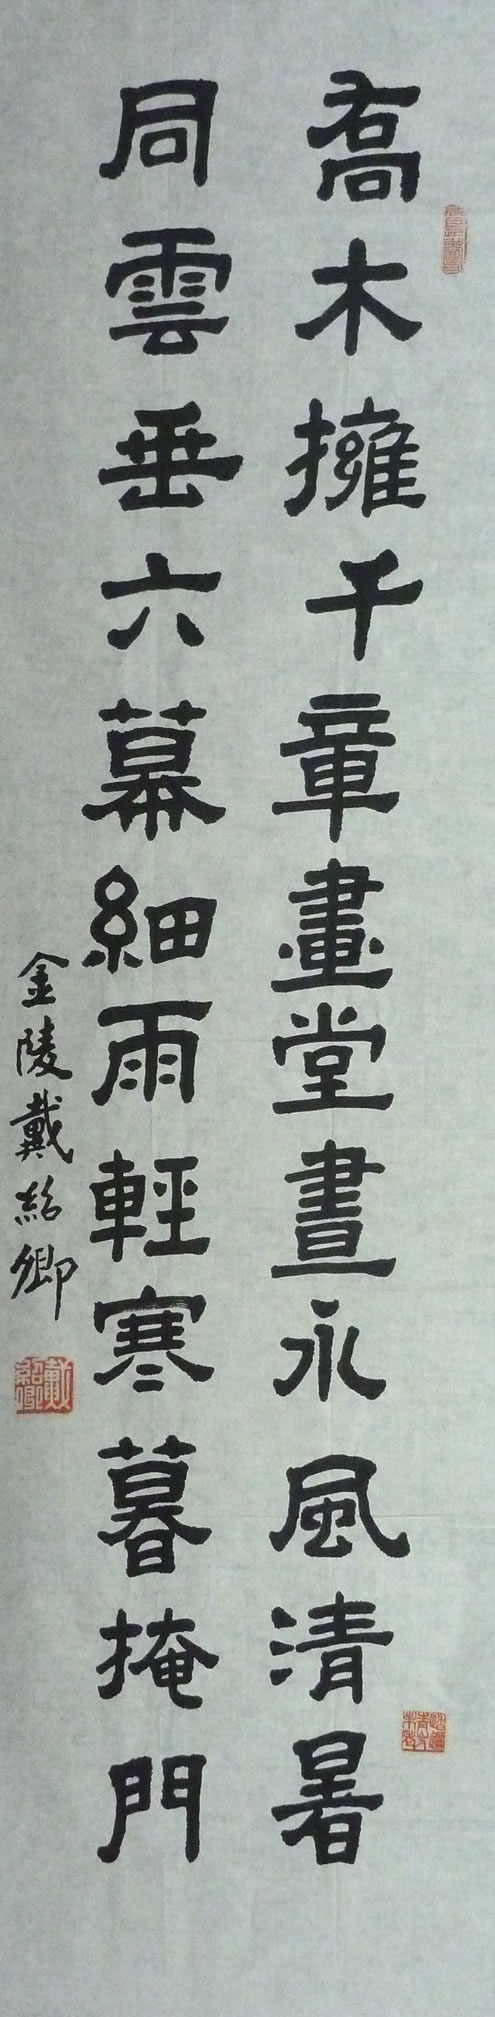 喬木擁千章畫堂晝永風清暑
同雲垂六幕細雨輕寒暮掩門
金陵戴紹卿